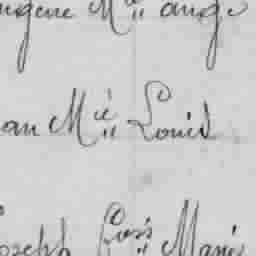 ugene M.ie ange
an M.ie Louis
oseph Fçois Marie